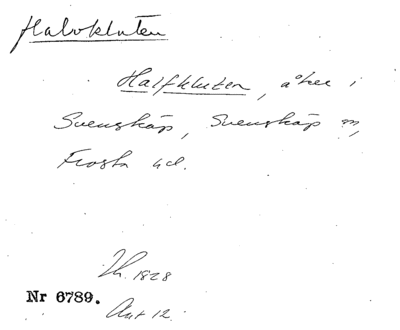 Halvkluten
Halfkluten, åker i
Svenskáp, Svenskáp sn,
Frosta hd.
Lh. 1828
Nr 6789.
Akt 12.